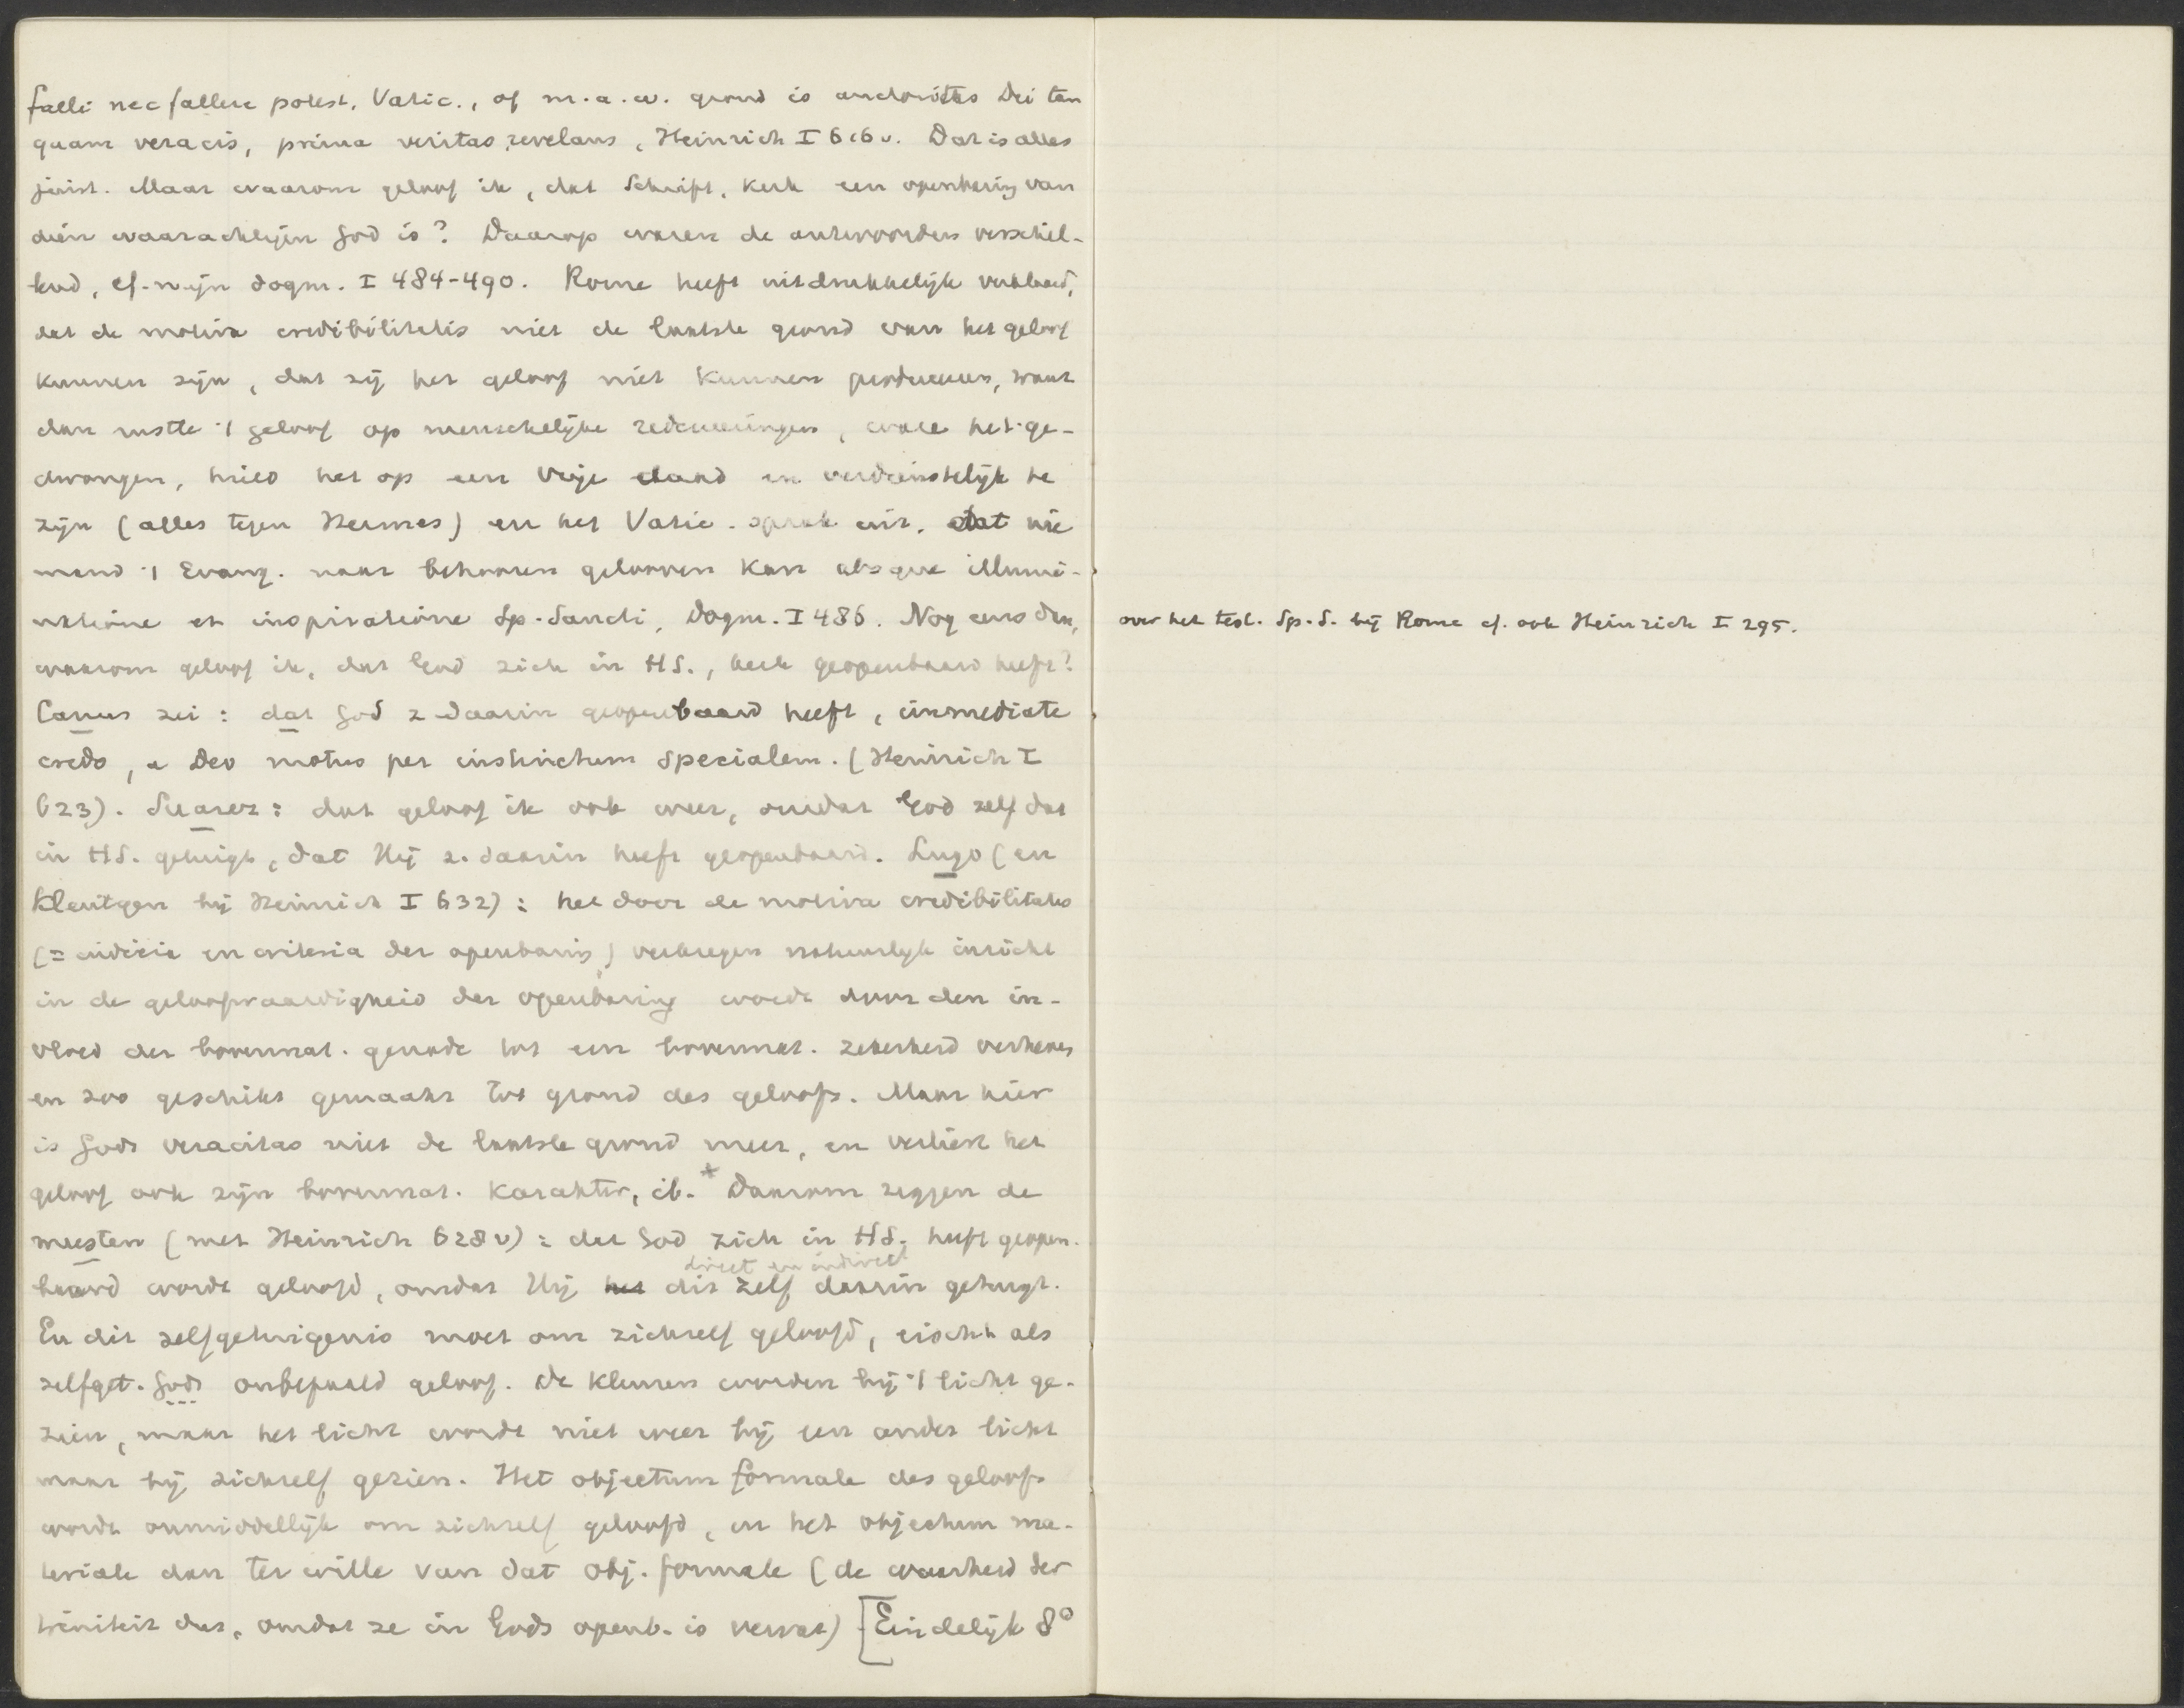 falli nec fallere potest. Vatic., of m.a.w. grond is auctoritas Dei tan
quam veracis, prima veritas revelans, Heinrich I 616 v. Dat is alles
juist. Maar waarom geloof ik, dat Schrift, Kerk een openbaring van
dien waarachtigen God is? Daarop waren de antwoorden verschil-
lend, cf. mijn dogm. I 484-490. Rome heeft uitdrukkelijk verklaard,
dat de motiva credibilitatis niet de laatste grond van het geloof
kunnen zijn, dat zij het geloof niet kunnen produceeren, want
dan rustte 't geloof op menschelijke redeneeringen, ware het ge-
dwongen, hield het op een vrije daad en verdienstelijk te
zijn (alles tegen Hermes) en het Vatic. sprak uit, dat nie
mand 't Evang. naar behooren gelooven kan absque illumi-
natione et inspiratione Sp. Sancti, Dogm. I 486. Nog eens dan,
waarom geloof ik, dat God zich in HS., kerk geopenbaard heeft?
Canus zei: dat God z. daarin geopenbaard heeft, immediate
credo, a Deo motus per instinctum specialem. (Heinrich I
623). Suarez: dat geloof ik ook weer, omdat God zelf dat
in HS. getuigt, dat Hij z. daarin heeft geopenbaard. Lugo (en
Kleutgen bij Heinrich I 632): het door de motiva credibilitatis
(= indicia en criteria der openbaring) verkregen natuurlijk inzicht
in de geloofwaardigheid der openbaring wordt door den in-
vloed der bovennat. genade tot een bovennat. zekerheid verheven
en zoo geschikt gemaakt tot grond des geloofs. Maar hier
is Gods veracitas niet de laatste grond meer, en verliest het
geloof ook zijn bovennat. karakter, ib.* Daarom zeggen de
meesten (met Heinrich 628 v): dat God zich in HS. heeft geopen-
direct en indirect
baard wordt geloofd, omdat Hij het dit zelf daarin getuigt.
En dit zelfgetuigenis moet om zichzelf geloofd, eischt als
zelfget. Gods onbepaald geloof. De kleuren worden bij 't licht ge-
zien, maar het licht wordt niet weer bij een ander licht
maar bij zichzelf gezien. Het objectum formale des geloofs
wordt onmiddellijk om zichzelf geloofd, en het objectum ma-
teriale dan ter wille van dat obj. formale (de waarheid der
triniteit dus, omdat ze in Gods openb. is vervat) [Eindelijk 8°
over het test. Sp. S. bij Rome cf. ook Heinrich I 295.